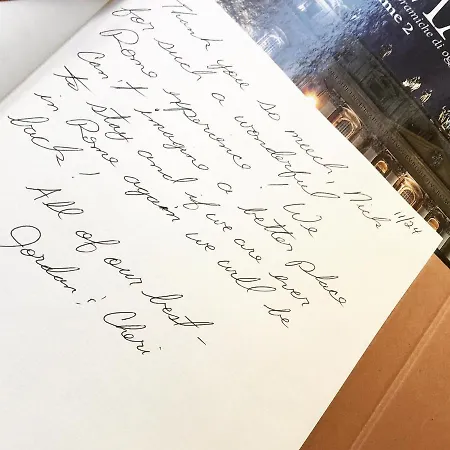 11/24
Thank you so much, Nick
for such a wonderful
Rome experience! We
can't imagine a better place
to stay and if we are ever
in Rome again we will be
back!
All of our best-
Jordan & Cheri
ramiche di og
me 2